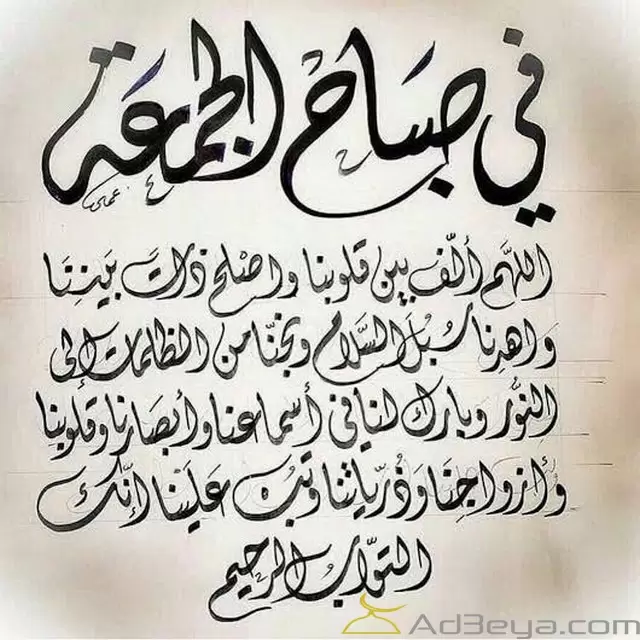 في صباح الجمعة
اللهم ألّف بين قلوبنا واصلح ذات بيننا
واهدنا سبل السلام ونجّنا من الظلمات إلى
النّور وبارك لنا في أسماعنا وأبصارنا وقلوبنا
وأزواجنا وذرّياتنا وتب علينا إنّك
التوّاب الرحيم
Ad3eya.com